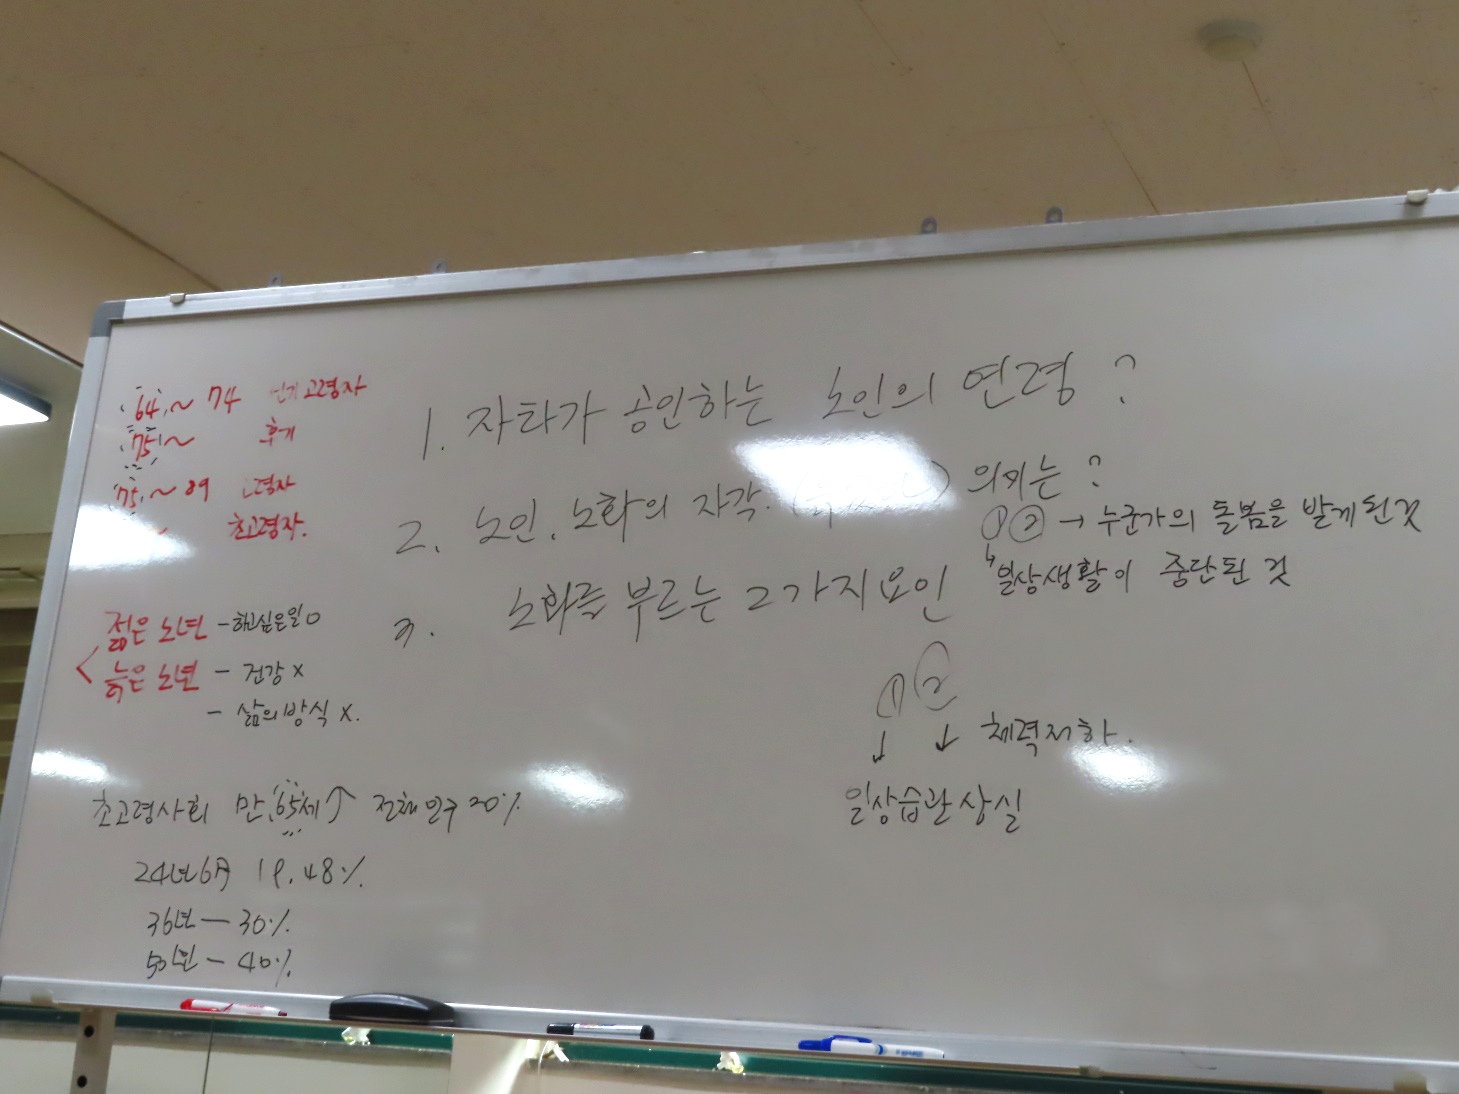 64 ~ 74 고령자
75 ~ 후기
75 ~ 89 고령자
초고령자.
젊은 노년 - 하고싶은일 O
늙은 노년 - 건강 x
- 삶의 방식 x.
초고령사회 만 65세↑ 전체인구 20%
24년 6月 19.48%
36년 — 30%
50년 — 40%
1. 자타가 공인하는 노인의 연령 ?
2. 노인. 노화의 자각. 의미는 ?
① ② → 누군가의 돌봄을 받게된것
↳ 일상생활이 중단된 것
3. 노화를 부르는 2가지 요인
① ②
↓ ↓ 체력저하.
일상습관 상실